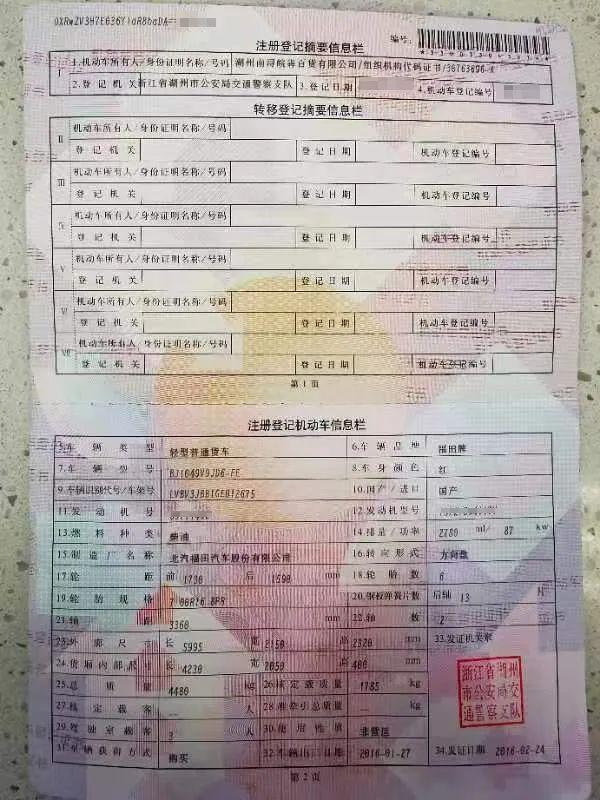 注册登记摘要信息栏
编号:
I
1.机动车所有人/身份证明名称/号码
百货有限公司/组织机构代码证书/
2.登记机关 浙江省湖州市公安局交通警察支队 3.登记日期 4.机动车登记编号
转移登记摘要信息栏
II 机动车所有人/身份证明名称/号码
登记机关 登记日期 机动车登记编号
III 机动车所有人/身份证明名称/号码
登记机关 登记日期 机动车登记编号
IV 机动车所有人/身份证明名称/号码
登记机关 登记日期 机动车登记编号
V 机动车所有人/身份证明名称/号码
登记机关 登记日期 机动车登记编号
VI 机动车所有人/身份证明名称/号码
登记机关 登记日期 机动车登记编号
VII 机动车所有人/身份证明名称/号码
登记机关 登记日期 机动车登记编号
第1页
注册登记机动车信息栏
5.车辆类型 轻型普通货车 6.车辆品牌 福田牌
7.车辆型号 BJ1049V9JD6-FE 8.车身颜色 红
9.车辆识别代号/车架号 10.国产/进口 国产
11.发动机号 12.发动机型号
13.燃料种类 柴油 14.排量/功率 2780 ml/ 87 kw
15.制造厂名称 北汽福田汽车股份有限公司 16.转向形式 方向盘
17.轮距 前 1730 后 1590 mm 18.轮胎数 6
19.轮胎规格 7.00R16 8PR 20.钢板弹簧片数 后轴 13 片
21.轴距 3360 mm 22.轴数 2
23.外廓尺寸 长 5995 宽 2150 高 2320 mm 33.发证机关章
24.货厢内部尺寸 长 4230 宽 2050 高 400 mm
浙江省湖州市公安局交通警察支队
25.总质量 4480 kg 26.核定载质量 1785 kg
27.核定载客 — 人 28.准牵引总质量 — kg
29.驾驶室载客 3 人 30.使用性质 非营运
31.车辆获得方式 购买 32.车辆出厂日期 2016-01-27 34.发证日期 2016-02-24
第2页